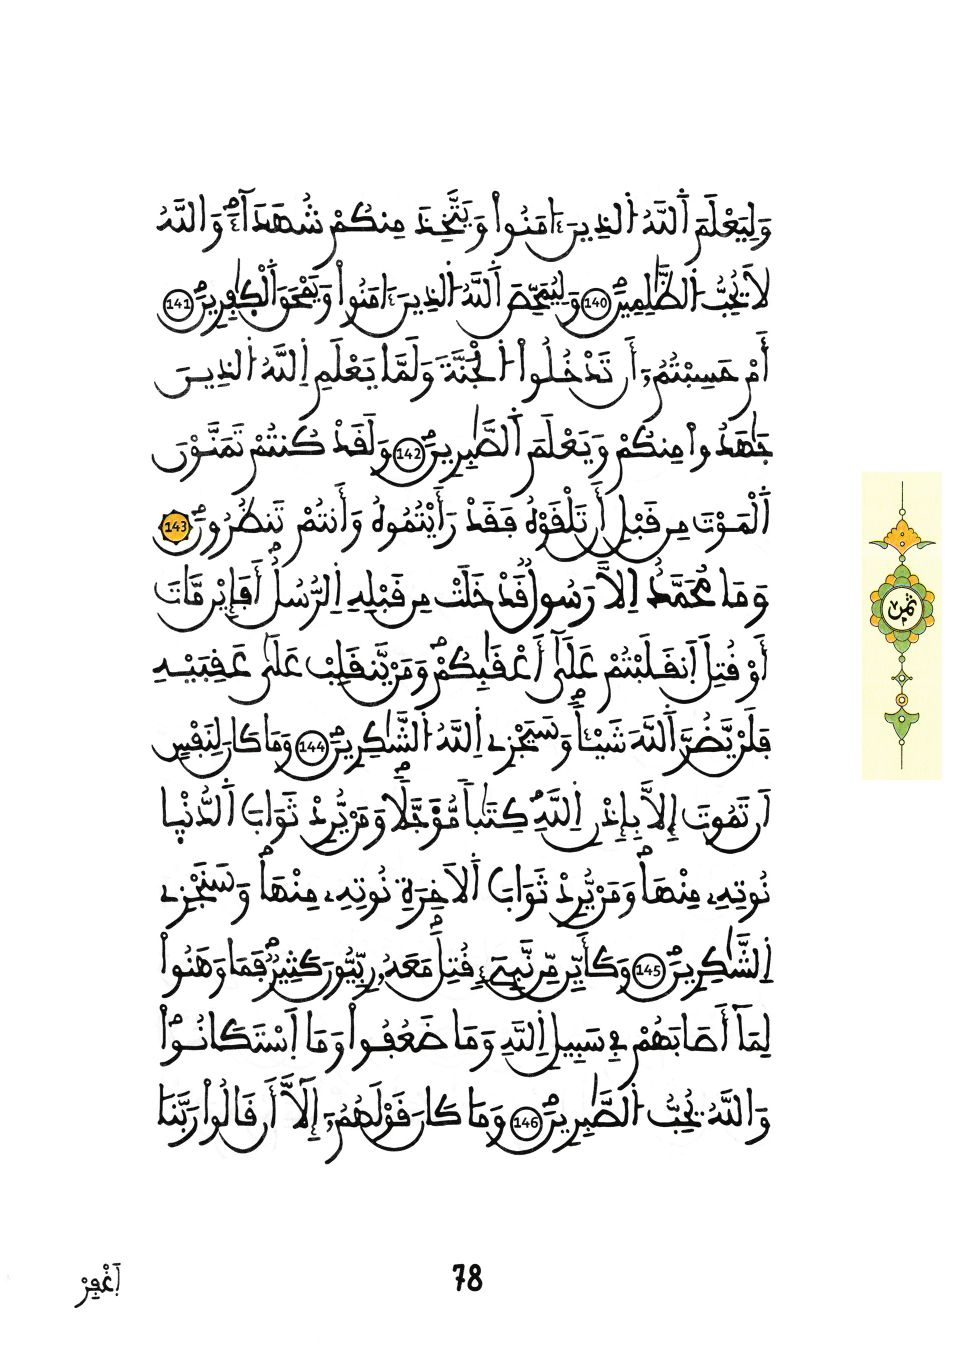 وَلِيَعْلَمَ اَ۬للَّهُ اُ۬لذِينَ ءَامَنُواْ وَيَتَّخِذَ مِنكُمْ شُهَدَآءَۖ وَاللَّهُ
لَا يُحِبُّ اُ۬لظَّٰلِمِينَۖ 140 وَلِيُمَحِّصَ اَ۬للَّهُ اُ۬لذِينَ ءَامَنُواْ وَيَمْحَقَ اَ۬لْكٰفِرِينَۖ 141
أَمْ حَسِبْتُمُۥٓ أَن تَدْخُلُواْ اُ۬لْجَنَّةَ وَلَمَّا يَعْلَمِ اِ۬للَّهُ اُ۬لذِينَ
جَٰهَدُواْ مِنكُمْ وَيَعْلَمَ اَ۬لصَّٰبِرِينَۖ 142 وَلَقَدْ كُنتُمْ تَمَنَّوْنَ
اَ۬لْمَوْتَ مِن قَبْلِ أَن تَلْقَوْهُ فَقَدْ رَأَيْتُمُوهُ وَأَنتُمْ تَنظُرُونَۖ 143
وَمَا مُحَمَّدٌ اِلَّا رَسُولٞ قَدْ خَلَتْ مِن قَبْلِهِ اِ۬لرُّسُلُۖ أَفَإِيْن مَّاتَ
أَوْ قُتِلَ اَ۪نقَلَبْتُمْ عَلَىٰٓ أَعْقَٰبِكُمْۖ وَمَنْ يَّنقَلِبْ عَلَىٰ عَقِبَيْهِ
فَلَنْ يَّضُرَّ اَ۬للَّهَ شَيْـٔاٗۖ وَسَيَجْزِے اِ۬للَّهُ اُ۬لشَّٰكِرِينَۖ 144 وَمَا كَانَ لِنَفْسٍ
اَن تَمُوتَ إِلَّا بِإِذْنِ اِ۬للَّهِۖ كِتَٰباٗ مُّؤَجَّلاٗۖ وَمَنْ يُّرِدْ ثَوَابَ اَ۬لدُّنْيٜا
نُوتِهِۦ مِنْهَاۖ وَمَنْ يُّرِدْ ثَوَابَ اَ۬لَاخِرَةِ نُوتِهِۦ مِنْهَاۖ وَسَنَجْزِے
اِ۬لشَّٰكِرِينَۖ 145 وَكَأَيِّن مِّن نَّبِيٓءٖ قُتِلَۖ مَعَهُۥ رِبِّيُّونَ كَثِيرٞۖ فَمَا وَهَنُواْ
لِمَآ أَصَابَهُمْ فِے سَبِيلِ اِ۬للَّهِ وَمَا ضَعُفُواْ وَمَا اَ۪سْتَكَانُواْۖ
وَاللَّهُ يُحِبُّ اُ۬لصَّٰبِرِينَۖ 146 وَمَا كَانَ قَوْلَهُمُۥٓ إِلَّآ أَن قَالُواْ رَبَّنَا
ثمن
اَ۪غْفِرْ
78